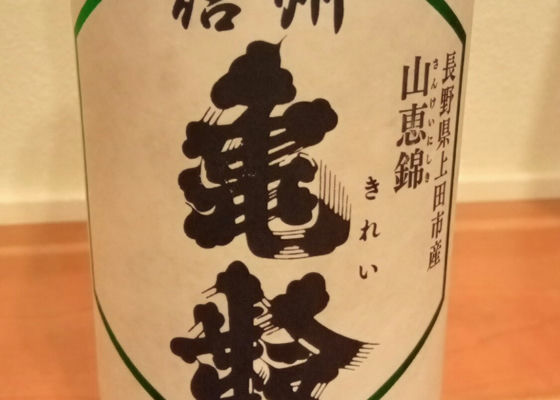 信州
亀齢
きれい
長野県上田市産
さんけいにしき
山恵錦